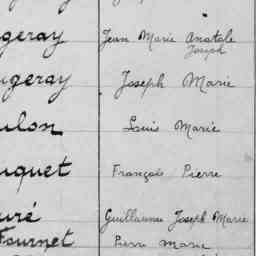 geray Jean Marie Anatole
Joseph
geray Joseph Marie
ulon Louis Marie
uquet François Pierre
uré Guillaume Joseph Marie
Fournet Pierre Marie